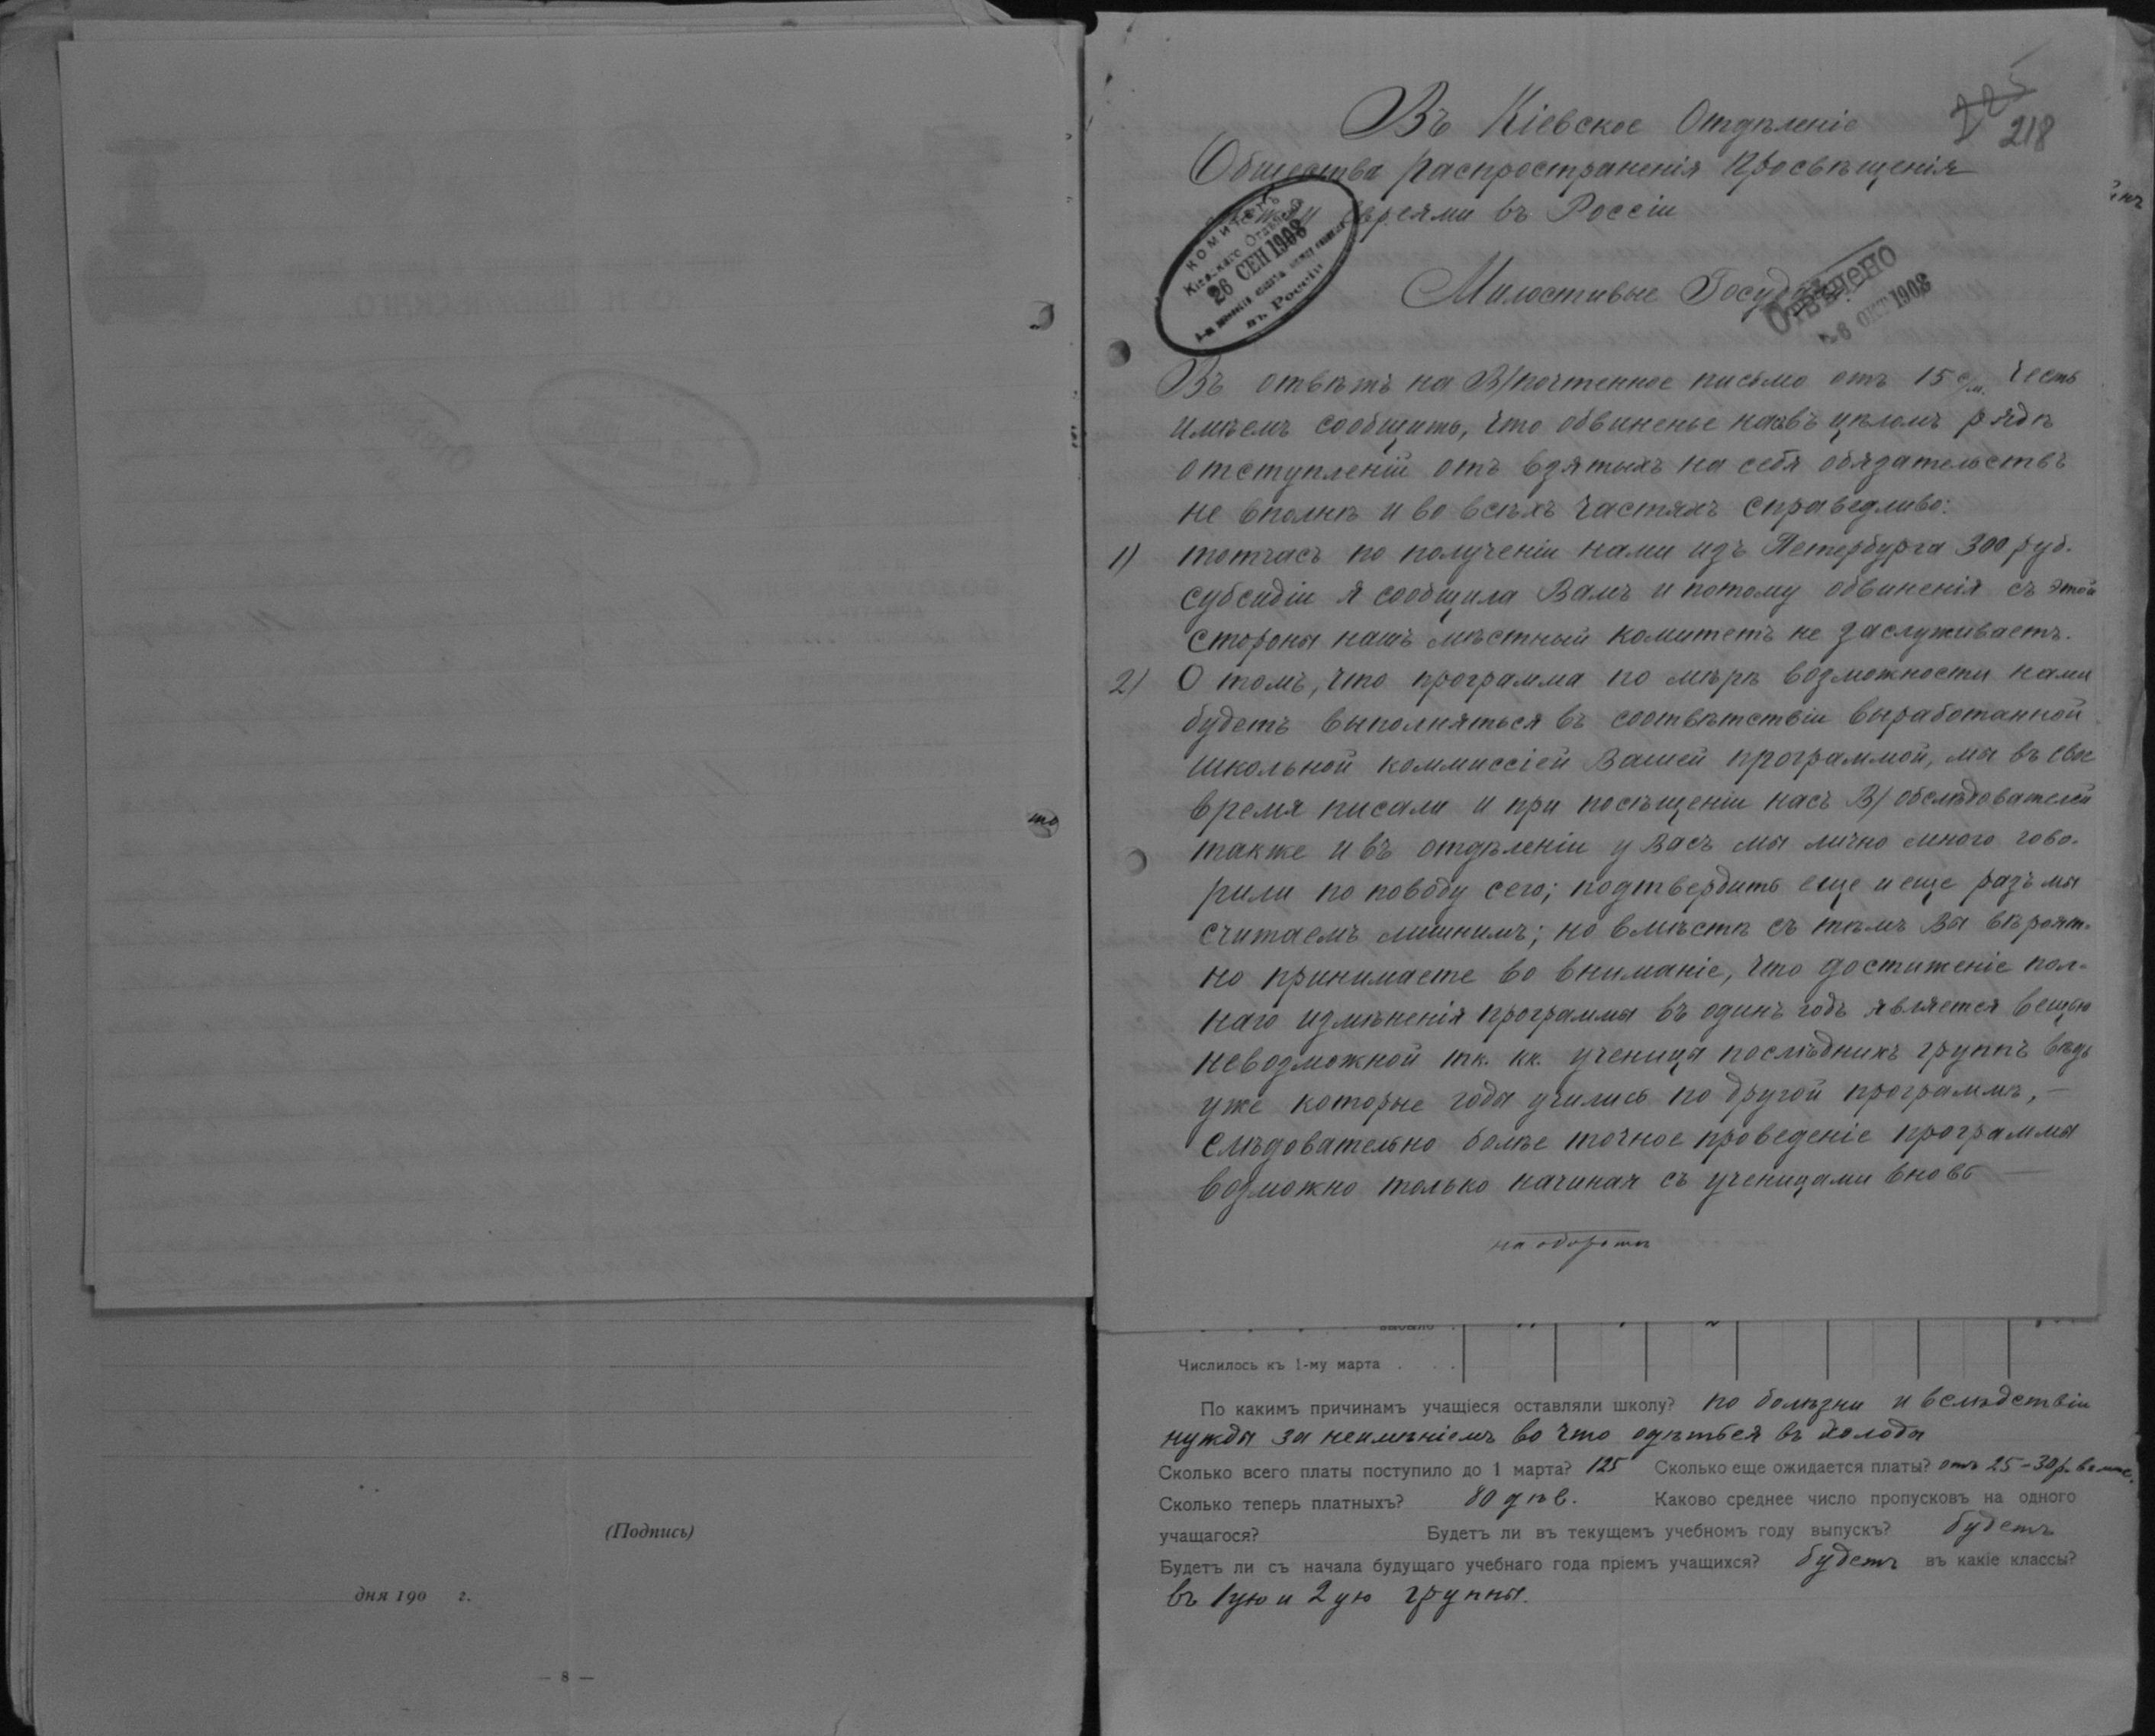 225
218
Въ Кіевское Отдѣленіе
Общества распространенія просвѣщенія
евреями въ Россіи
КОМИТЕТЪ
Кіевскаго Отдѣленія
26 СЕН 1908
въ Россіи
Милостивые Государи!
Отвѣчено
6 ОКТ 1908
Въ отвѣтъ на В/почтенное письмо отъ 15 с/м. честь
имѣемъ сообщить, что обвиненье насъ въ цѣломъ рядѣ
отступленій отъ взятыхъ на себя обязательствъ
не вполнѣ и во всѣхъ частяхъ справедливо:
1) тотчасъ по полученіи нами изъ Петербурга 300 руб.
субсидіи я сообщила Вамъ и потому обвиненія съ этой
стороны нашъ мѣстный комитетъ не заслуживаетъ.
2) О томъ, что программа по мѣрѣ возможности нами
будетъ выполняться въ соотвѣтствіи выработанной
школьной коммиссіей Вашей программой, мы въ свое
время писали и при посѣщеніи насъ В/ обслѣдователей
также и въ отдѣленіи у Васъ мы лично много гово-
рили по поводу сего; подтвердить еще и еще разъ мы
считаемъ лишнимъ; но вмѣстѣ съ тѣмъ Вы вѣроят-
но принимаете во вниманіе, что достиженіе пол-
наго измѣненія программы въ одинъ годъ является вещью
невозможной тк. кк. ученицы послѣднихъ группъ вѣдь
уже которые года учились по другой программѣ, —
слѣдовательно болѣе точное проведеніе программы
возможно только начиная съ ученицами вновь —
на оборотѣ
Числилось къ 1-му марта . . .
По какимъ причинамъ учащіеся оставляли школу? по болѣзни и вслѣдствіи
нужды за неимѣніемъ во что одѣться въ холода
Сколько всего платы поступило до 1 марта? 125 Сколько еще ожидается платы? отъ 25-30 р. в мѣс.
Сколько теперь платныхъ? 80 дѣв. Каково среднее число пропусковъ на одного
учащагося? Будетъ ли въ текущемъ учебномъ году выпускъ? будетъ
Будетъ ли съ начала будущаго учебнаго года пріемъ учащихся? будетъ въ какіе классы?
въ 1ую и 2ую группы.
то
(Подпись)
дня 190 г.
— 8 —